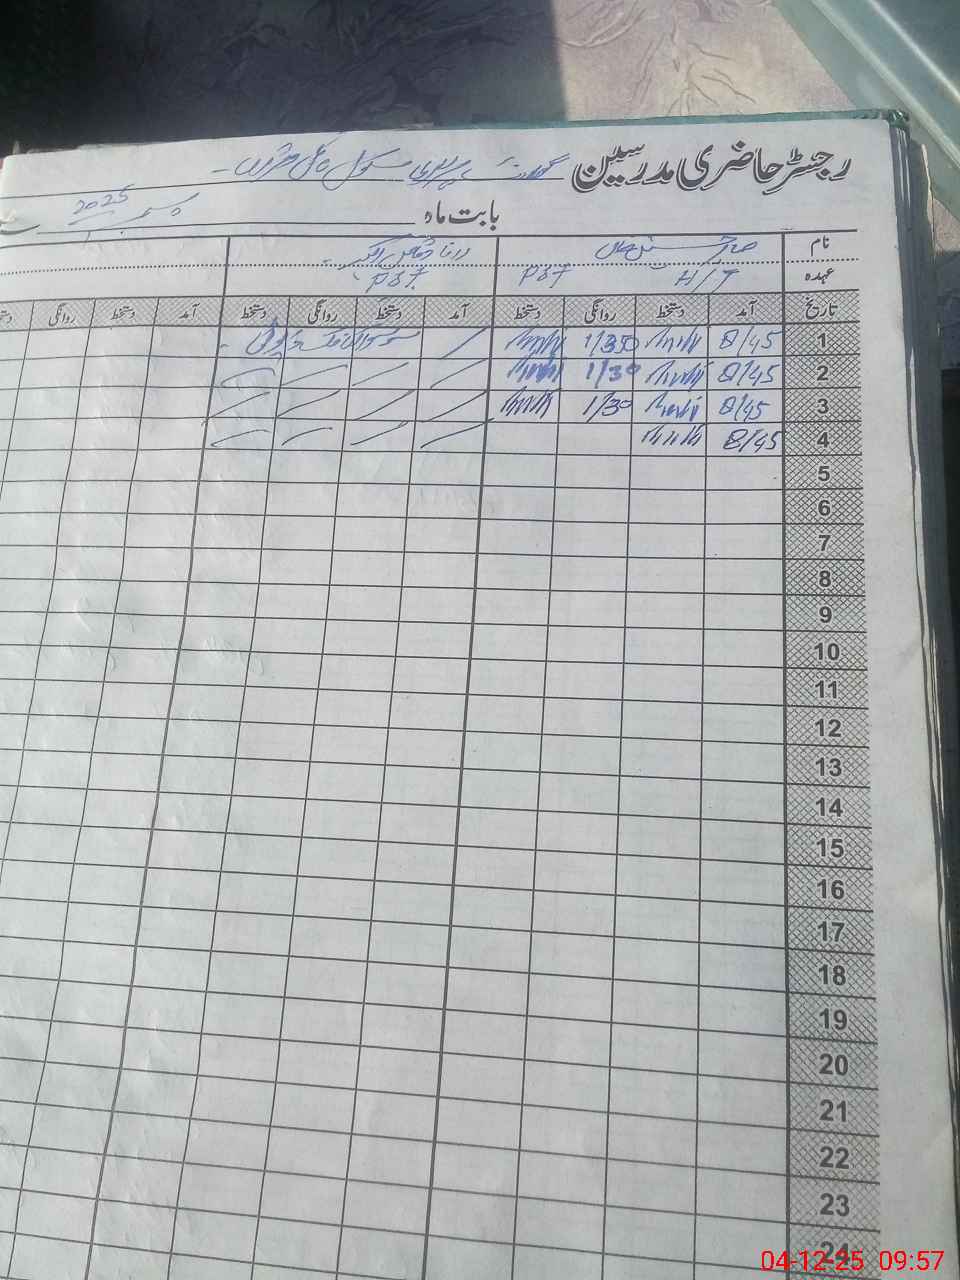 رجسٹر حاضری مدرسین گورنمنٹ پرائمری سکول
بابت ماہ دسمبر 2025
نام
عہدہ H/T PST PST
تاریخ آمد دستخط روانگی دستخط آمد دستخط روانگی دستخط آمد دستخط روانگی
1 8/45 1/30
2 8/45 1/30
3 8/45 1/30
4 8/45
5
6
7
8
9
10
11
12
13
14
15
16
17
18
19
20
21
22
23
24
04-12-25 09:57